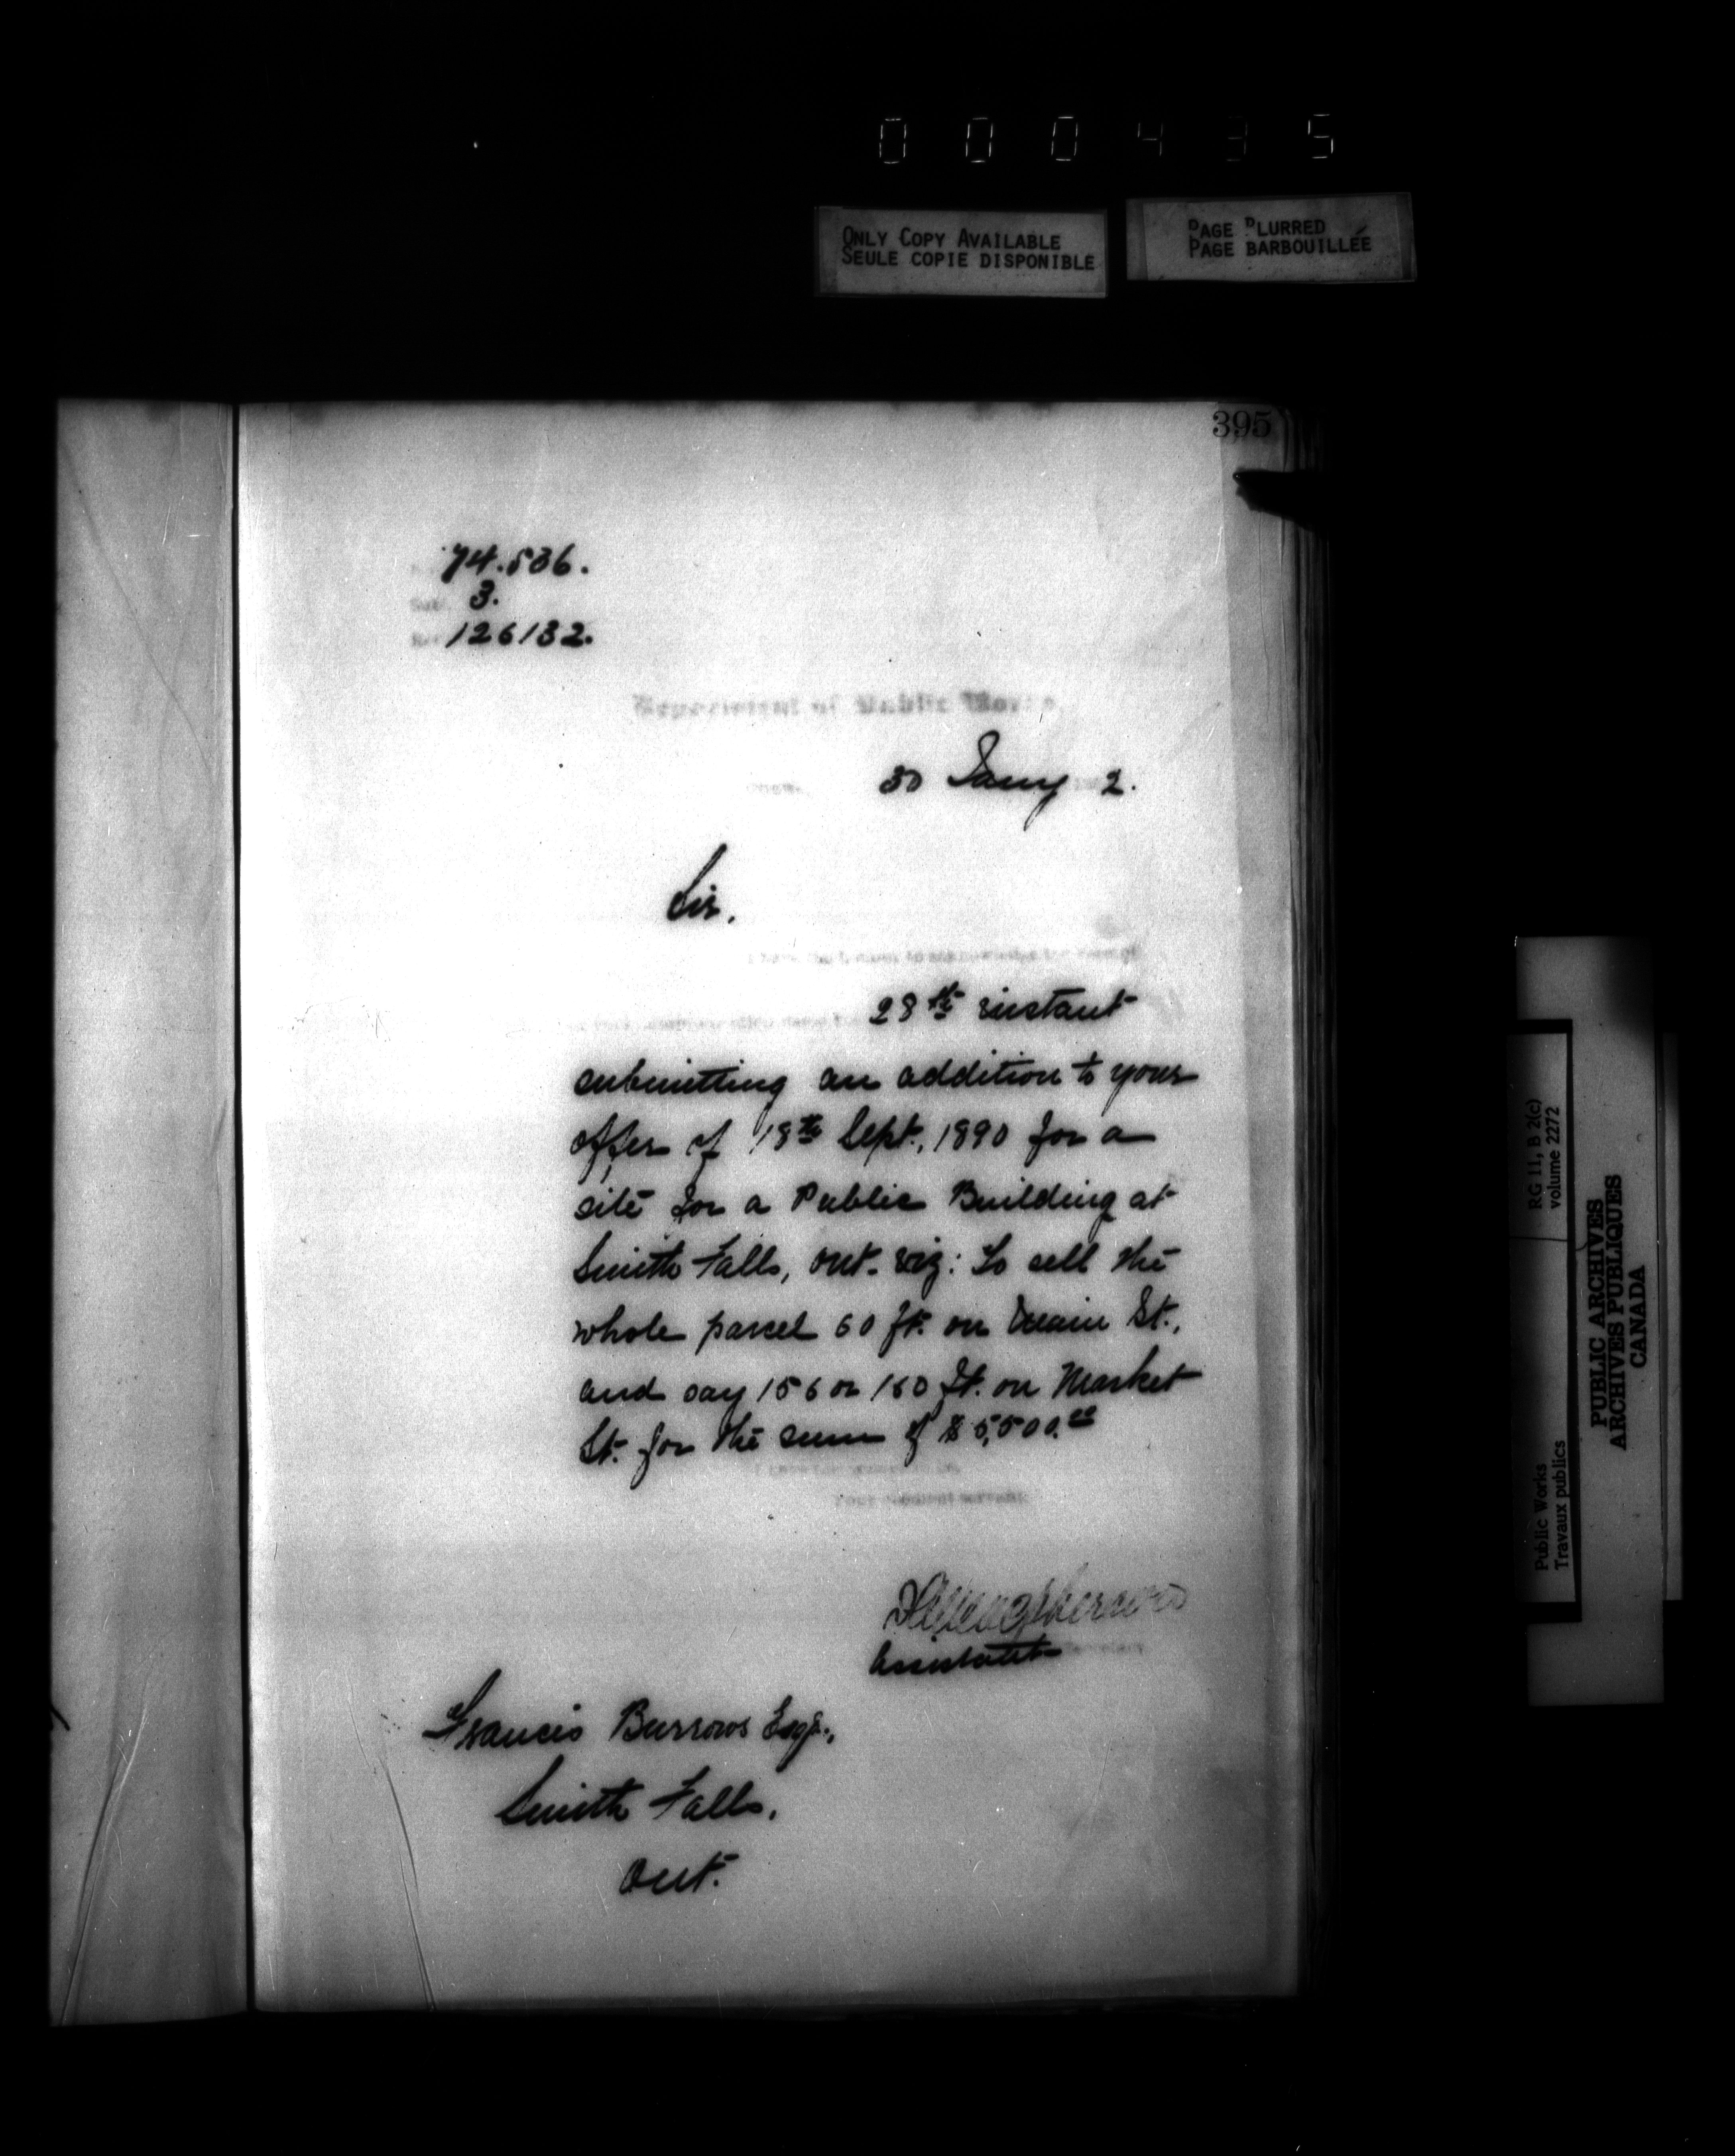 000435
ONLY COPY AVAILABLE
SEULE COPIE DISPONIBLE
PAGE BLURRED
PAGE BARBOUILLÉE
395
74.536.
Sub. 3.
126132.
Department of Public Works,
30 Jany 2.
Sir.
I have the honor to acknowledge the receipt
28th instant
submitting an addition to your
offer of 18th Sept., 1890 for a
site for a Public Building at
Smith Falls, Ont. viz: To sell the
whole parcel 60 ft. on Main St.,
and say 156 or 160 ft. on Market
St. for the sum of $5,500.00
Your obedient servant,
Assistant Secretary
Francis Burrows Esqr.,
Smith Falls,
Ont.
Public Works
Travaux publics
RG 11, B 2(c)
volume 2272
PUBLIC ARCHIVES
ARCHIVES PUBLIQUES
CANADA